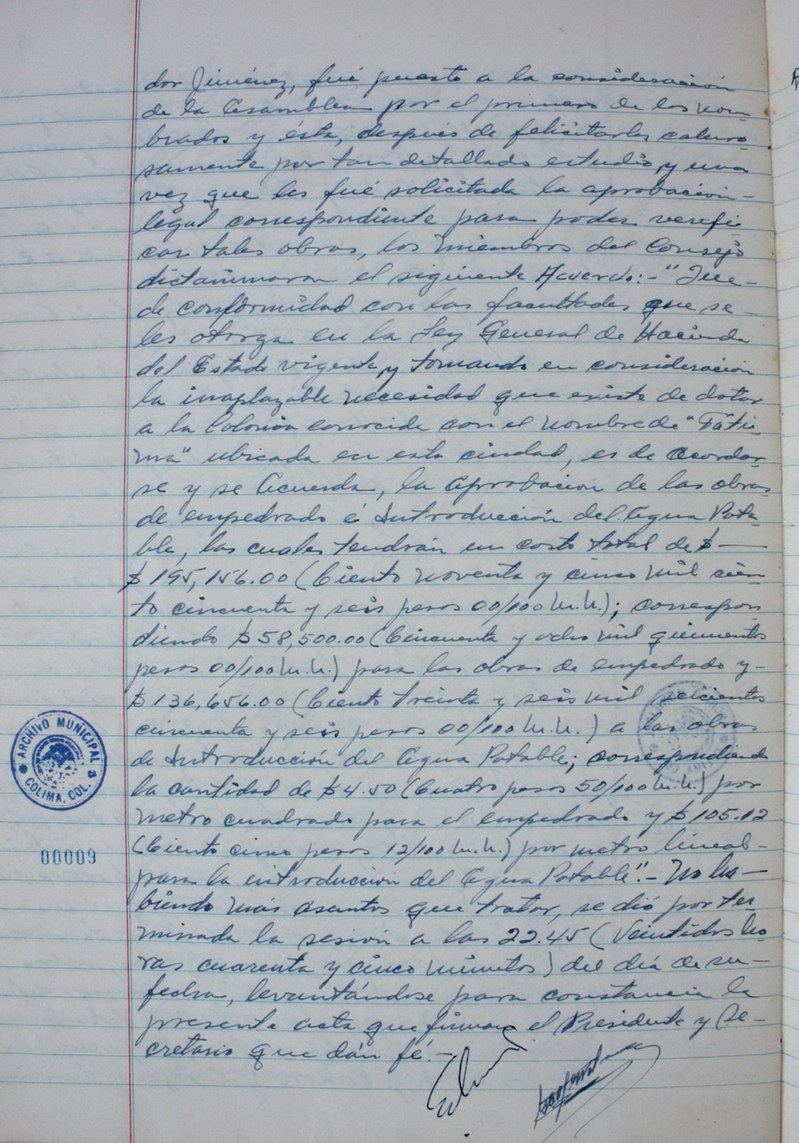 dor Jiménez, fué puesto a la consideración
de la Asamblea por el primero de los nom
brados y ésta, después de felicitarles caluro
samente por tan detallado estudio, y una
vez que les fué solicitada la aprobación-
legal correspondiente para poder verifi
car tales obras, los miembros del Consejo
dictaminaron el siguiente Acuerdo:- "Que-
de conformidad con las facultades que se-
les otorga en la Ley General de Hacienda
del Estado vigente, y tomando en consideración
la inaplazable necesidad que existe de dotar
a la Colonia conocida con el nombre de "Fáti-
ma" ubicada en esta ciudad, es de acordar-
se y se Acuerda, la Aprobación de las obras-
de empedrado é Introducción del Agua Pota-
ble, las cuales tendrán un costo total de $-
$195,156.00 (Ciento noventa y cinco mil cien-
to cincuenta y seis pesos 00/100 M.N.); correspon
diendo $58,500.00 (Cincuenta y ocho mil quinientos
pesos 00/100 M.N.) para las obras de empedrado y-
$136,656.00 (Ciento treinta y seis mil seiscientos
cincuenta y seis pesos 00/100 M.N.) a las obras
de Introducción del Agua Potable; correspondiendo
la cantidad de $4.50 (Cuatro pesos 50/100 M.N.) por
metro cuadrado para el empedrado y $105.12
(Ciento cinco pesos 12/100 M.N.) por metro lineal-
para la introducción del Agua Potable".- No ha-
biendo más asuntos que tratar, se dió por ter-
minada la sesión a las 22.45 (Veintidos ho-
ras cuarenta y cinco minutos) del día de su-
fecha, levantándose para constancia la
presente acta que firman el Presidente y Se-
cretario que dán fé.-
ARCHIVO MUNICIPAL
COLIMA, COL.
00009